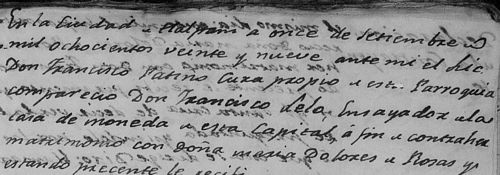 En la Ciudad de Tlalpam a once de Setiembre de
mil ochocientos veinte y nueve ante mi el Lic.
Don Francisco Patino Cura propio de esta Parroquia
comparecio Don Francisco de la Ensayador de la
casa de moneda de esta Capital a fin de contraher
matrimonio con doña maria Dolores de Rosas y
estando precente le recibi